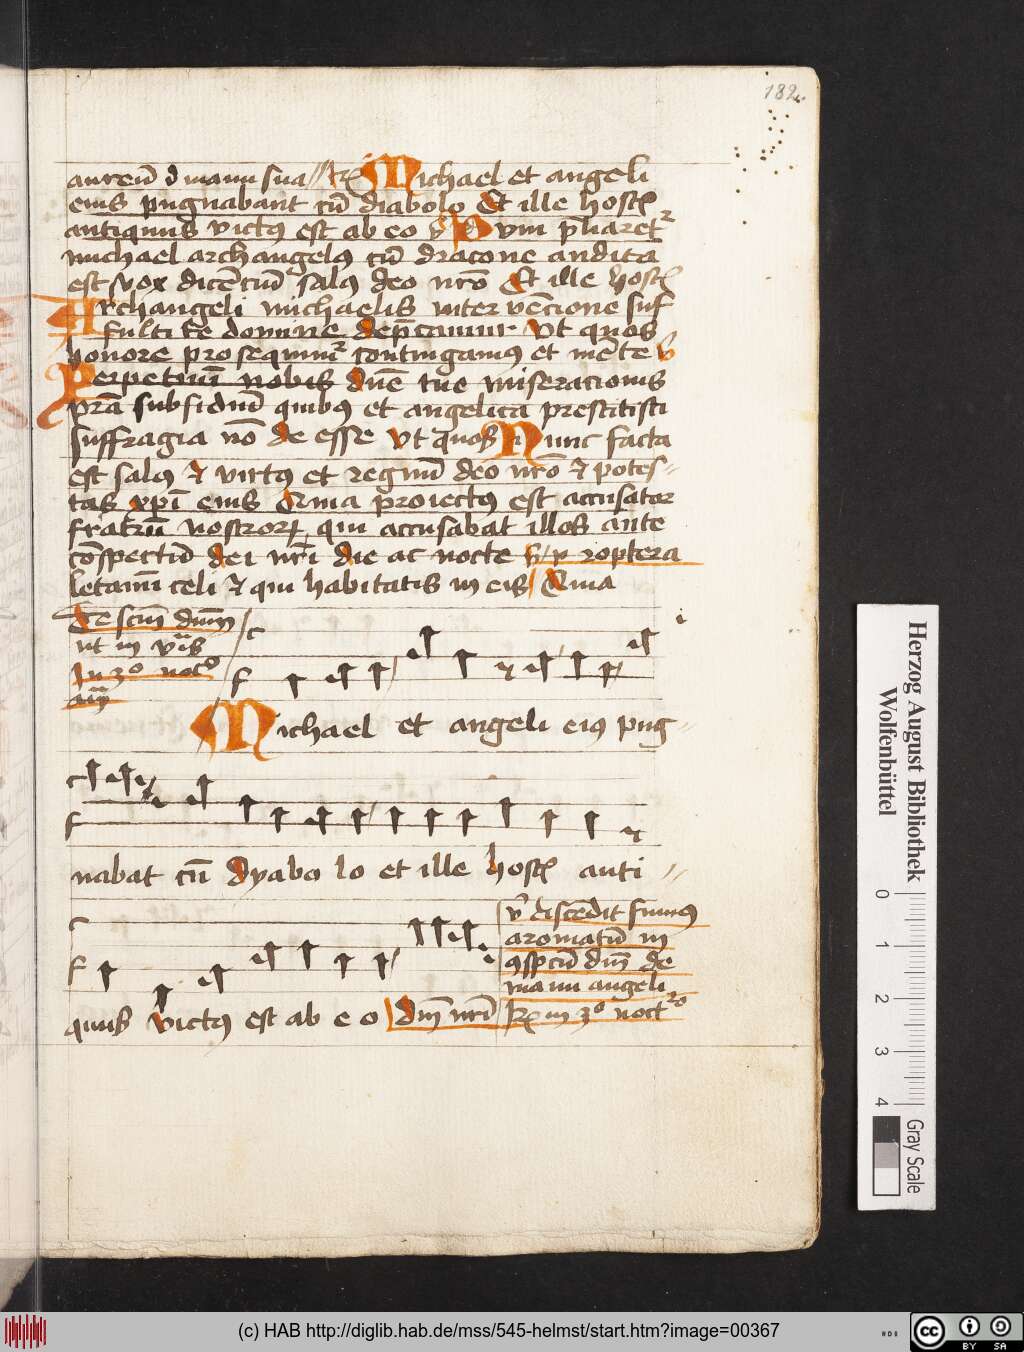 182.
aureū ī manu sua Michael et angeli
eius pugnabant cū diabolo Et ille hostis
antiquus victus est ab eo Dum p̄liaretr
michael archangelus cū dracone audita
est vox dicētiū salus deo nr̄o Et ille hostis
Archangeli michaelis intervēcione suf
fulti te domine dep̄camur Ut quos
honore prosequimur contingamus et mēte
Perpetuū nobis dn̄e tue miseracionis
pr̄a subsidiū quibus et angelica prestitisti
suffragia nō de esse Ut quos Nunc facta
est salus et virtus et regnū deo nr̄o et potes-
tas xp̄i eius Quia proiectus est accusator
fratrū nostrorum qui accusabat illos ante
cōspectū dei nr̄i die ac nocte v̄ propterea
letamī celi et qui habitatis in eis Quia
De scm̄ dm̄
ut in
In 3o nocto
an̄
Michael et angeli eius pug-
nabat cū dyabo lo et ille hostis anti-
quus victus est ab e o dm̄ nr̄i
v̄ Ascēdit fumus
aromatū in
ɔspcū dn̄i de
manu angeli
in 3o noctro
Herzog August Bibliothek
Wolfenbüttel
0 1 2 3 4
Gray Scale
(c) HAB http://diglib.hab.de/mss/545-helmst/start.htm?image=00367
cc BY SA